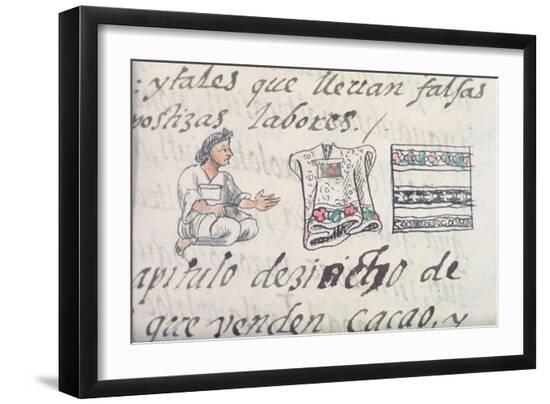 : ytales que lleuan falsas
postizas labores. /
apitulo dezi ocho de
que venden cacao, y